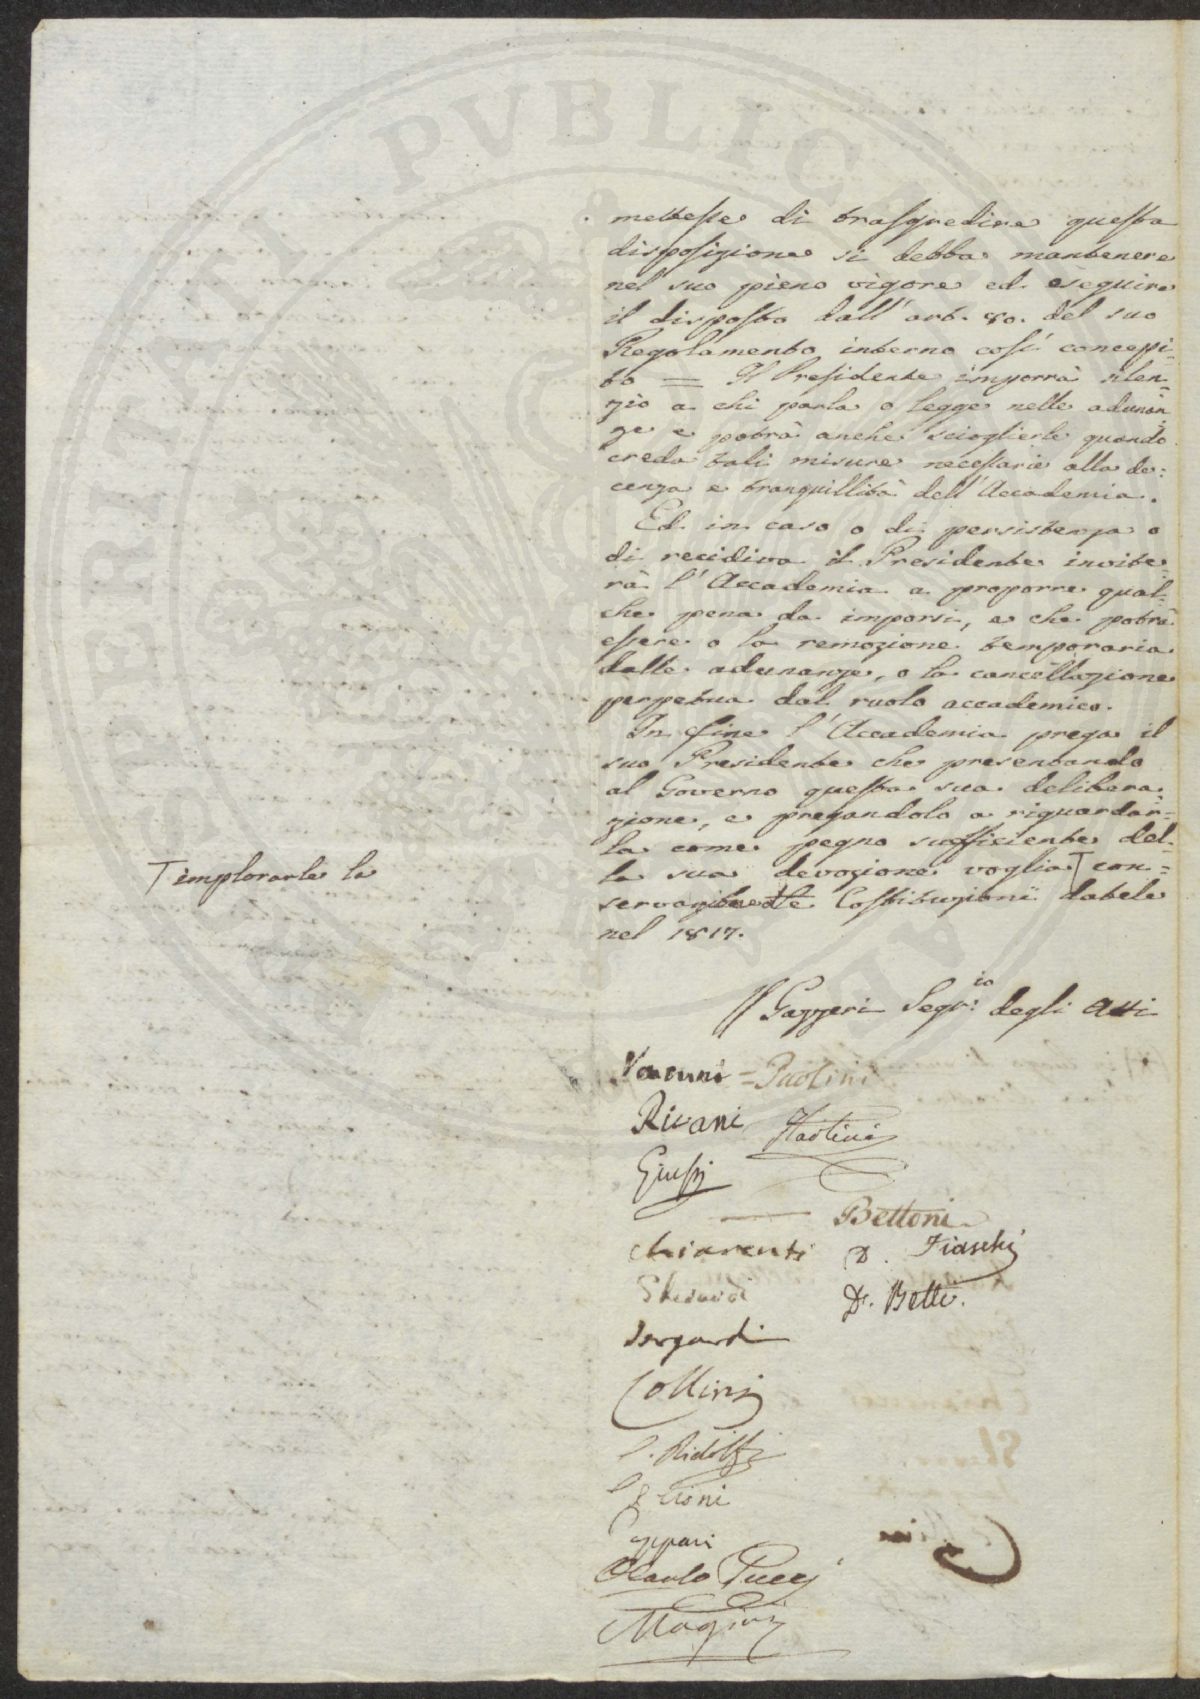 mettesse di trasgredire questa
disposizione si debba mantenere
nel suo pieno vigore ed eseguire
il disposto dall' art. 80. del suo
Regolamento interno così concepi-
to = Il Presidente imporrà silen-
zio a chi parla o legge nelle adunan-
ze e potrà anche scioglierle quando
creda tali misure necessarie alla de-
cenza e tranquillità dell' Accademia.
Ed in caso o di persistenza o
di recidiva il Presidente invite-
rà l' Accademia a proporre qual-
che pena da imporsi, e che potrà
essere o la remozione temporaria
dalle adunanze, o la cancellazione
perpetua dal ruolo accademico.
In fine l' Accademia prega il
suo Presidente che presentando
al Governo questa sua delibera-
zione, e pregandolo a riguardar-
la come pegno sufficiente del-
la sua devozione voglia T con-
servazione Costituzioni datele
nel 1817.
T implorarle la
Gazzeri Segr.io degli Atti
= Paolini
Rivani
Giusti
Bettoni
Chiarenti D. Fiaschi
D. Betti.
Sergardi
Collini
Ridolfi
Carlo Pucci
PVBLICA